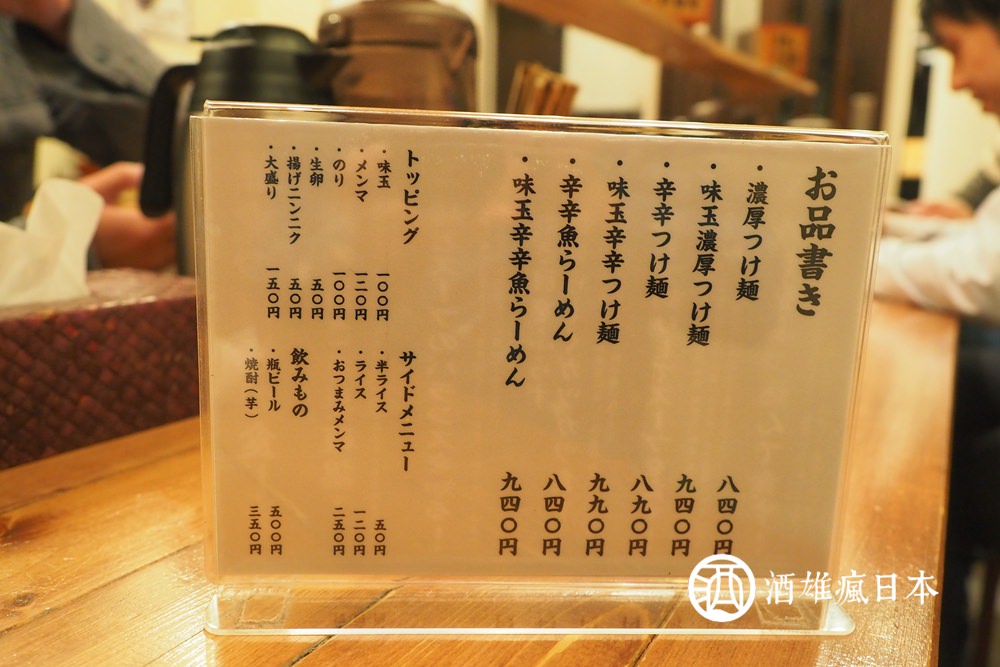 お品書き
・濃厚つけ麺 八四〇円
・味玉濃厚つけ麺 九四〇円
・辛辛つけ麺 八九〇円
・味玉辛辛つけ麺 九九〇円
・辛辛魚らーめん 八四〇円
・味玉辛辛魚らーめん 九四〇円
トッピング
・味玉 一〇〇円
・メンマ 一二〇円
・のり 一〇〇円
・生卵 五〇円
・揚げニンニク 五〇円
・大盛り 一五〇円
サイドメニュー
・半ライス 五〇円
・ライス 一二〇円
・おつまみメンマ 二五〇円
飲みもの
・瓶ビール 五〇〇円
・焼酎（芋） 三五〇円
酒雄瘋日本